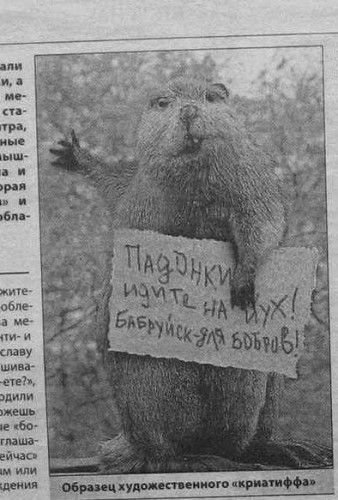 али
и, а
ме-
ста-
тра,
ные
ыш-
а и
орая
» и
обла-
жите-
обле-
ва ме-
нти- и
славу
шива-
-ете?»,
одили
ожешь
ые «бо-
глаша-
ейчас»
ым или
ждения
ПАДОНКИ
ИДИТЕ НА ЙУХ!
БАБРУЙСК-ДЛЯ БОБРОВ!
Образец художественного «криатиффа»